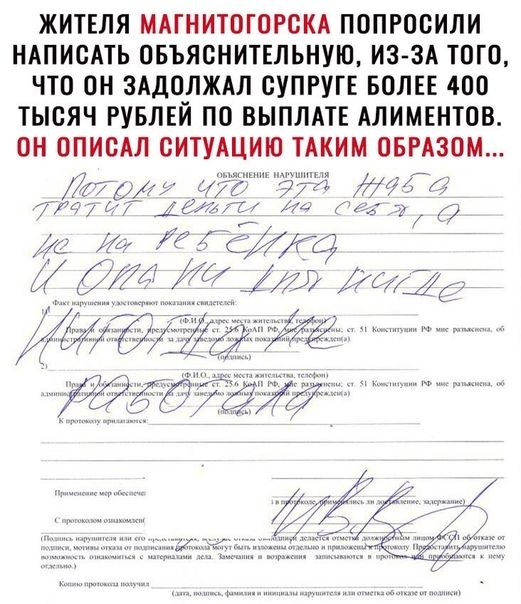 ЖИТЕЛЯ МАГНИТОГОРСКА ПОПРОСИЛИ
НАПИСАТЬ ОБЪЯСНИТЕЛЬНУЮ, ИЗ-ЗА ТОГО,
ЧТО ОН ЗАДОЛЖАЛ СУПРУГЕ БОЛЕЕ 400
ТЫСЯЧ РУБЛЕЙ ПО ВЫПЛАТЕ АЛИМЕНТОВ.
ОН ОПИСАЛ СИТУАЦИЮ ТАКИМ ОБРАЗОМ...
ОБЪЯСНЕНИЕ НАРУШИТЕЛЯ
Потому что эта жаба
тратит деньги на себя, а
не на ребёнка
И она ни дня нигде
Факт нарушения удостоверяют показания свидетелей:
1)
(Ф.И.О., адрес места жительства, телефон)
Права и обязанности, предусмотренные ст. 25.6 КоАП РФ, мне разъяснены; ст. 51 Конституции РФ мне разъяснена, об
административной ответственности за дачу заведомо ложных показаний предупрежден(а)
никогда не
(подпись)
2)
(Ф.И.О., адрес места жительства, телефон)
Права и обязанности, предусмотренные ст. 25.6 КоАП РФ, мне разъяснены; ст. 51 Конституции РФ мне разъяснена, об
административной ответственности за дачу заведомо ложных показаний предупрежден(а)
работала
(подпись)
К протоколу прилагаются:
Применение мер обеспече
в протоколе, применялись ли доставление, задержание)
С протоколом ознакомлен(
(Подпись нарушителя или его представителя, в случае отказа делается отметка должностным лицом ФССП об отказе от
подписи, мотивы отказа от подписания протокола могут быть изложены отдельно и приложены к протоколу. Предоставить нарушителю
возможность ознакомиться с материалами дела. Замечания и возражения записываются в протокол или приобщаются к нему
отдельно.)
Копию протокола получил
(дата, подпись, фамилия и инициалы нарушителя или отметка об отказе от подписи)